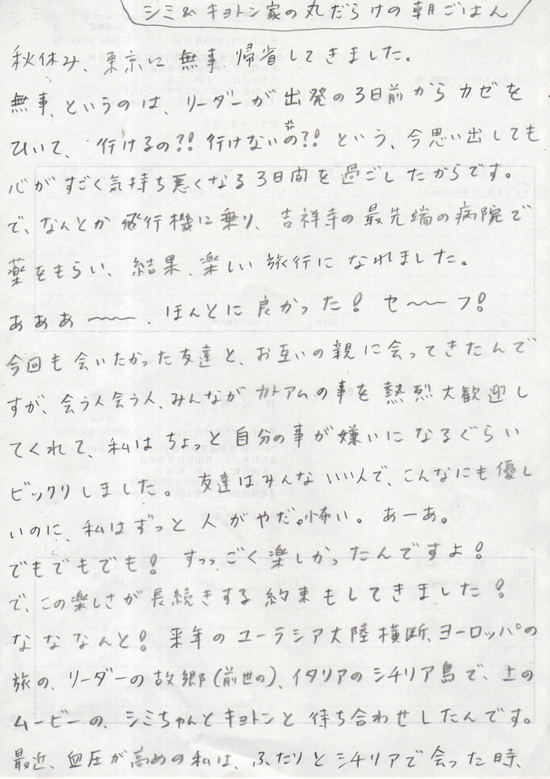 シミ&キョトン家の丸だらけの朝ごはん
秋休み、東京に無事帰省してきました。
無事、というのは、リーダーが出発の3日前からカゼを
ひいて、行けるの?!行けないの?!という、今思い出しても
心がすごく気持ち悪くなる3日間を過ごしたからです。
で、なんとか飛行機に乗り、吉祥寺の最先端の病院で
薬をもらい、結果、楽しい旅行になれました。
あああ〜〜〜、ほんとに良かった!セ〜〜フ!
今回も会いたかった友達と、お互いの親に会ってきたんで
すが、会う人会う人、みんながカトアムの事を熱烈大歓迎し
てくれて、私はちょっと自分の事が嫌いになるぐらい
ビックリしました。友達はみんないい人で、こんなにも優し
いのに、私はずっと人がやだ。怖い。あーあ。
でもでもでも!すっっごく楽しかったんですよ!
で、この楽しさが長続きする約束もしてきました!
なななんと!来年のユーラシア大陸横断、ヨーロッパの
旅の、リーダーの故郷(前世の)、イタリアのシチリア島で、上の
ムービーの、シミちゃんとキョトンと待ち合わせしたんです。
最近、血圧が高めの私は、ふたりとシチリアで会った時、